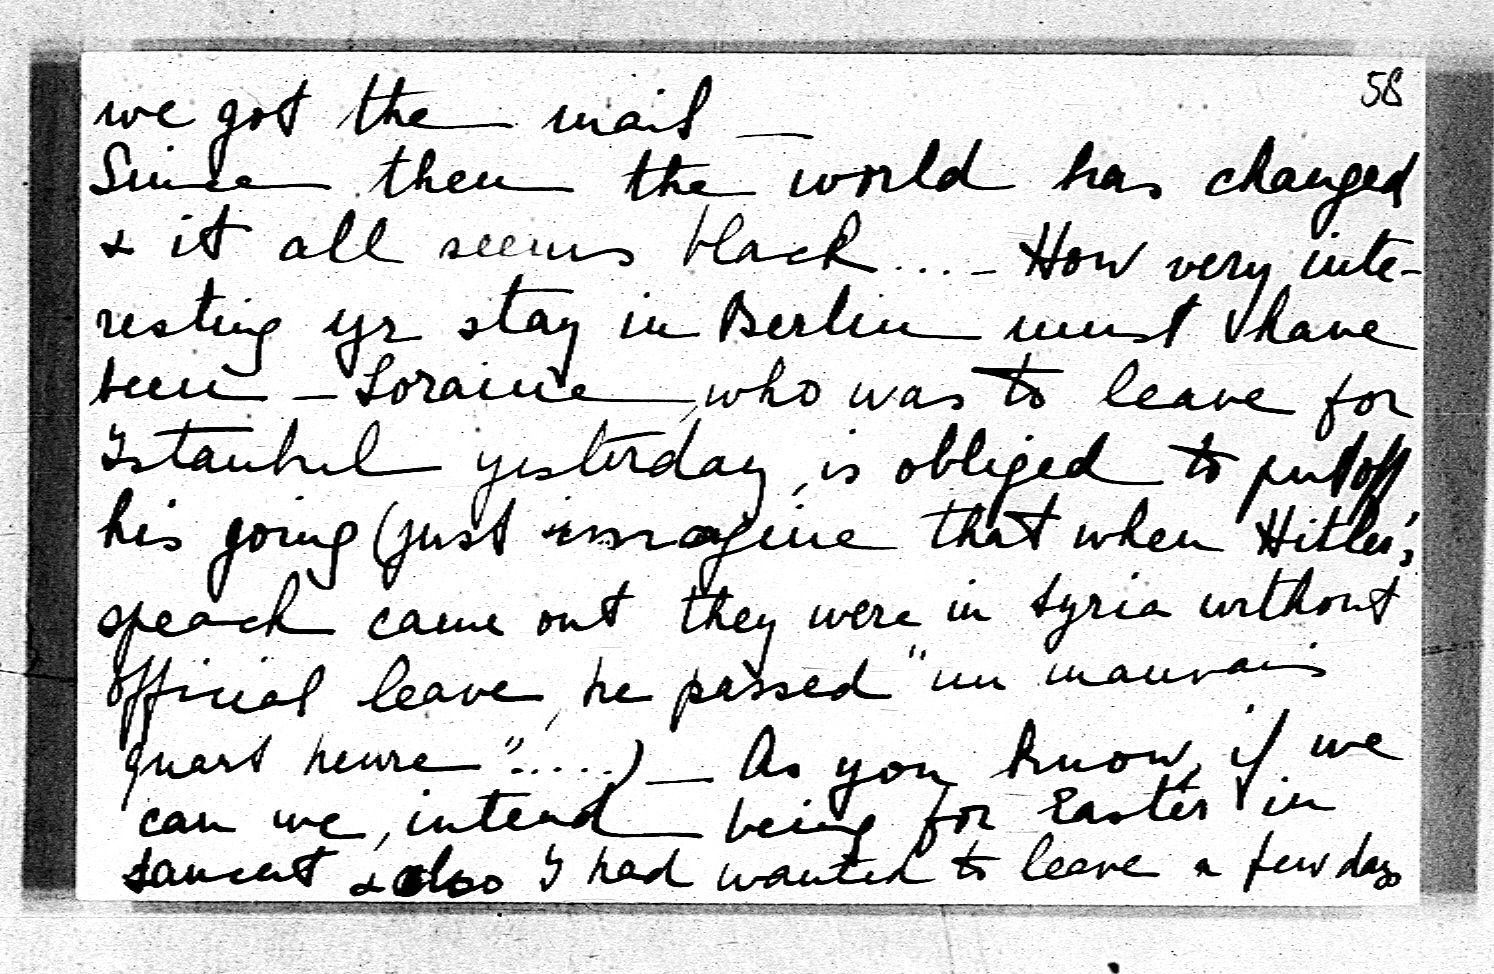 58
we got the mail —
Since then the world has changed
& it all seems black .... — How very inte-
resting yr stay in Berlin must have
been — Loraine, who was to leave for
Istanbul yesterday, is obliged to put off
his going (just imagine that when Hitler's
speach came out they were in Syria without
official leave, he passed "un mauvais
quart heure".....) — As you know, if we
can we, intend being for Easter in
& also I had wanted to leave a few days